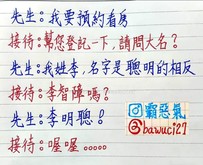 先生:我要預約看房
接待:幫您登記一下,請問大名?
先生:我姓李,名字是聰明的相反
接待:李智障嗎?
先生:李明聰!
接待:喔喔......
霸惡氣
@bawuci27